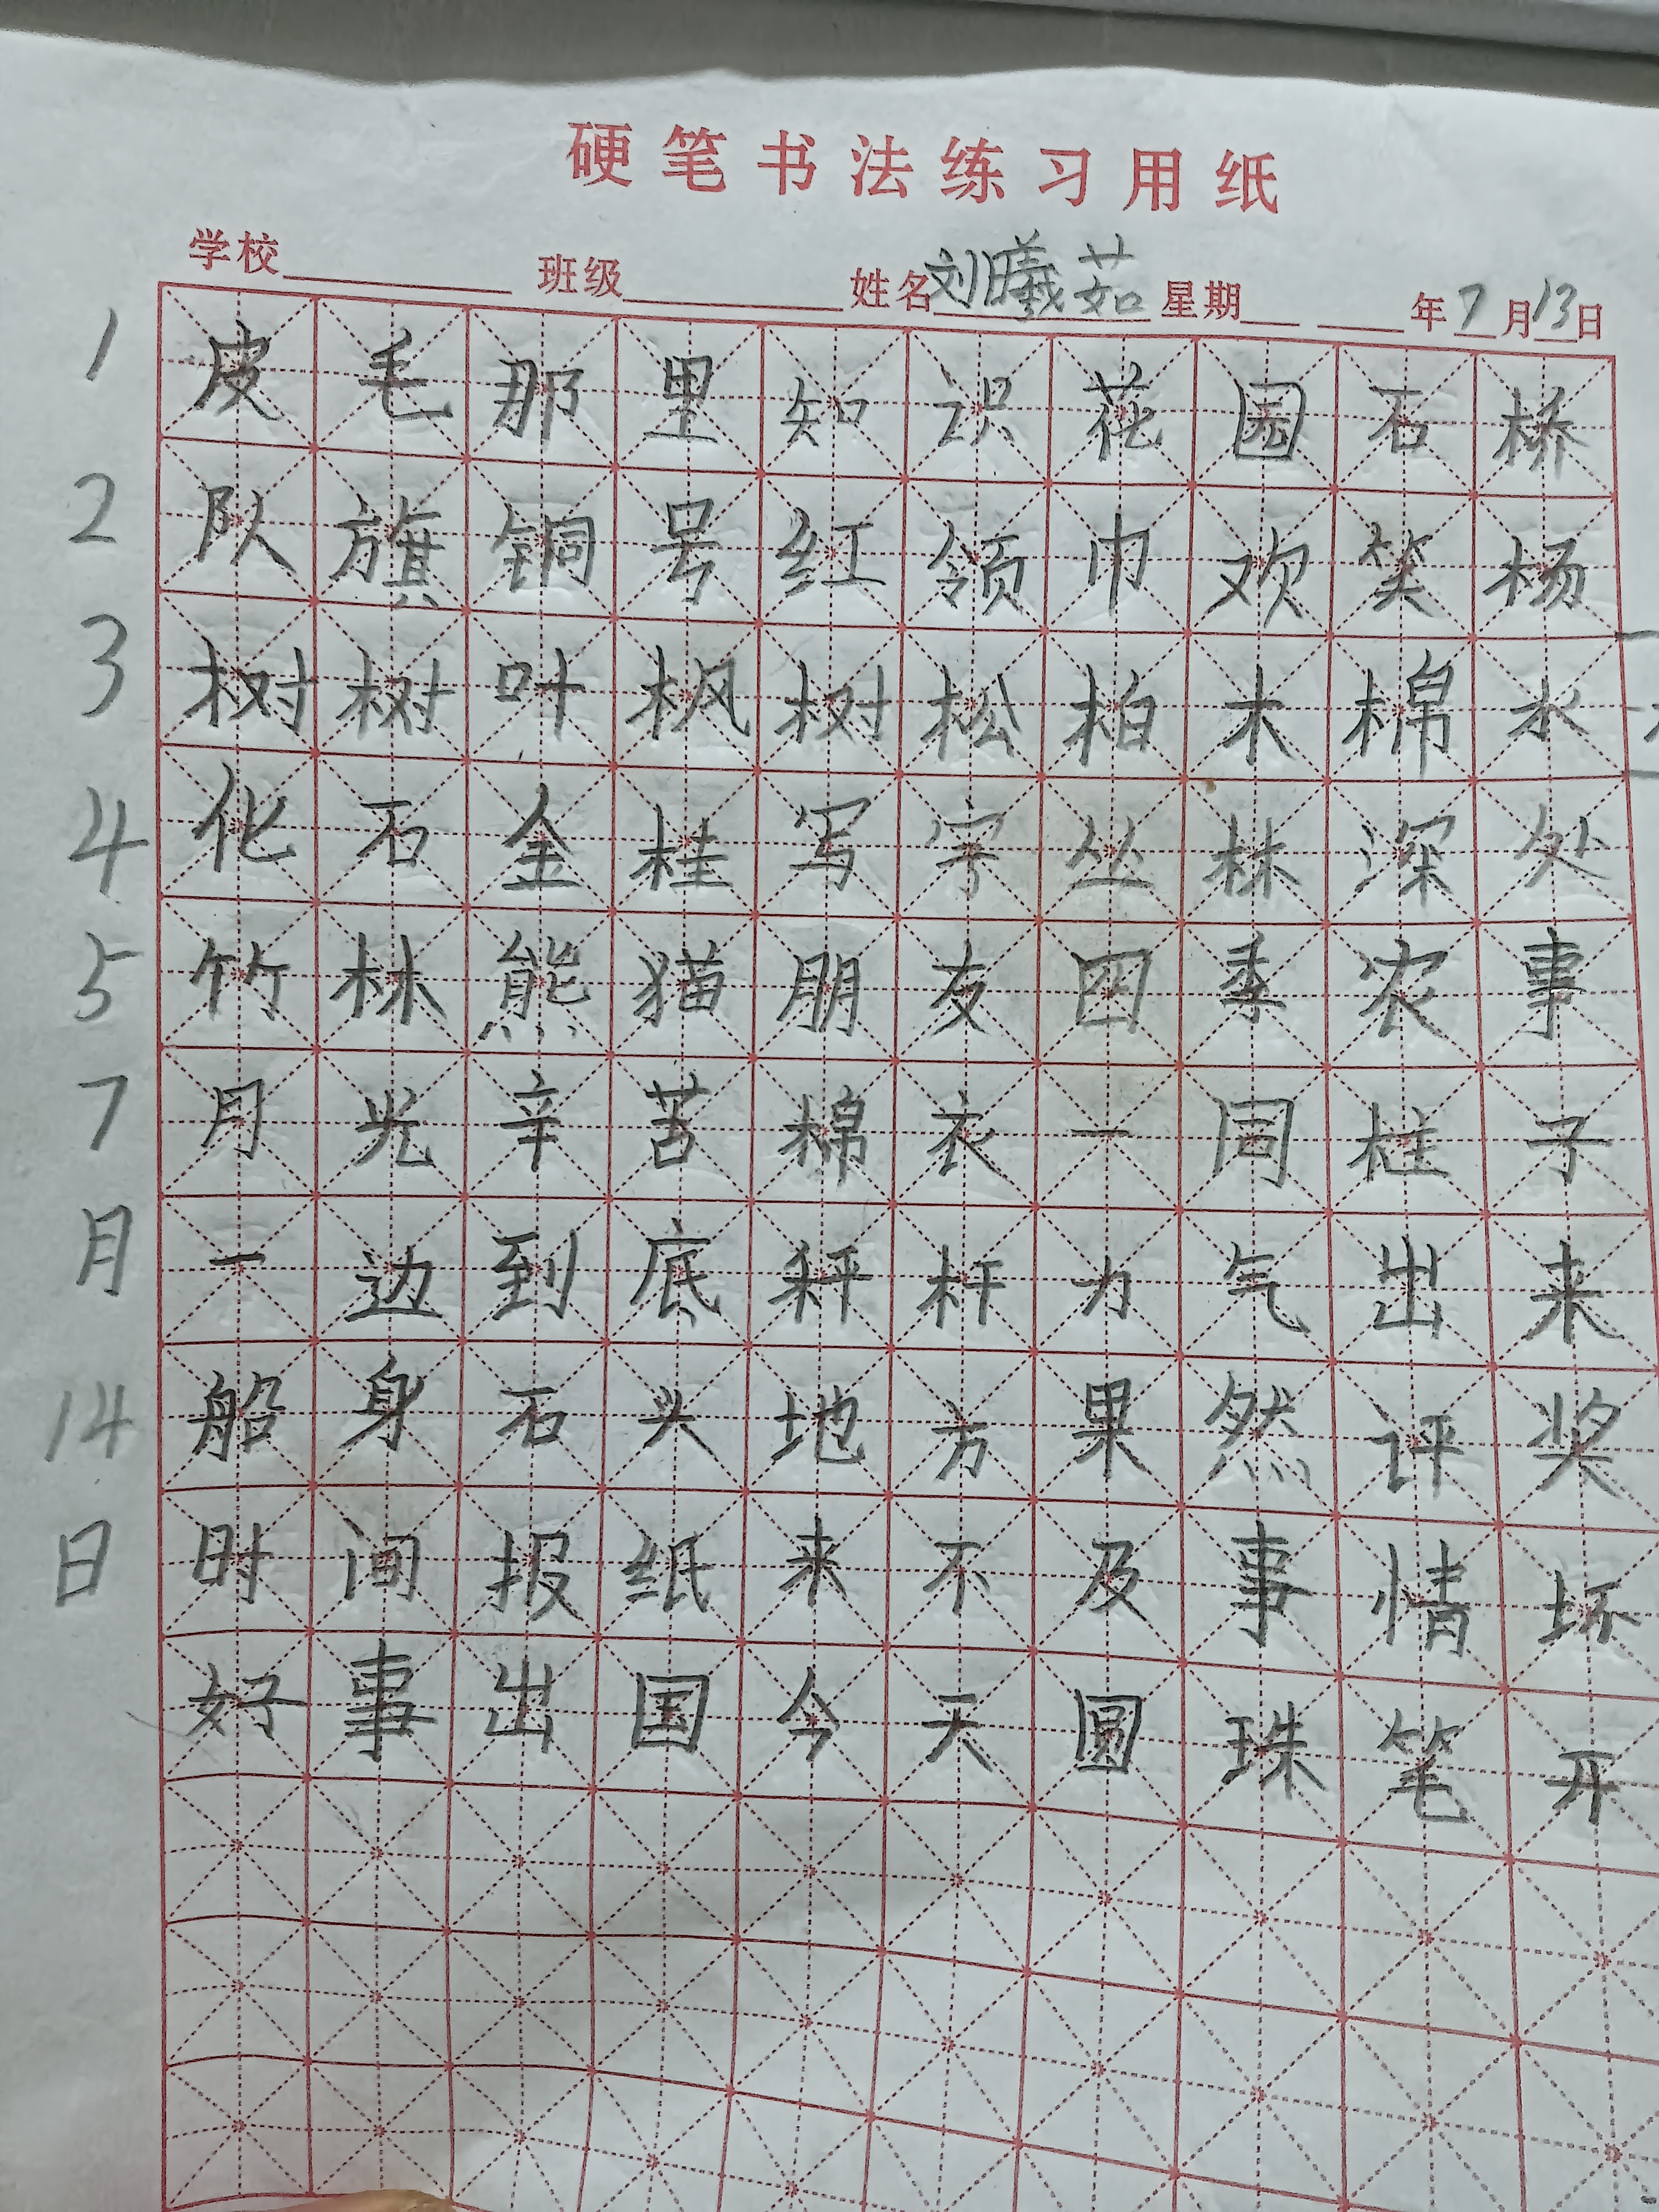 硬笔书法练习用纸
学校 班级 姓名刘曦茹 星期 年7月13日
1 皮毛那里知识花园石桥
2 队旗铜号红领巾欢笑杨
3 树树叶枫树松柏木棉水
4 化石金桂写字丛林深处
5 竹林熊猫朋友四季农事
7 月光辛苦棉衣一同柱子
月 一边到底秤杆力气出来
14 船身石头地方果然评奖
日 时间报纸来不及事情坏
好事出国今天圆珠笔开